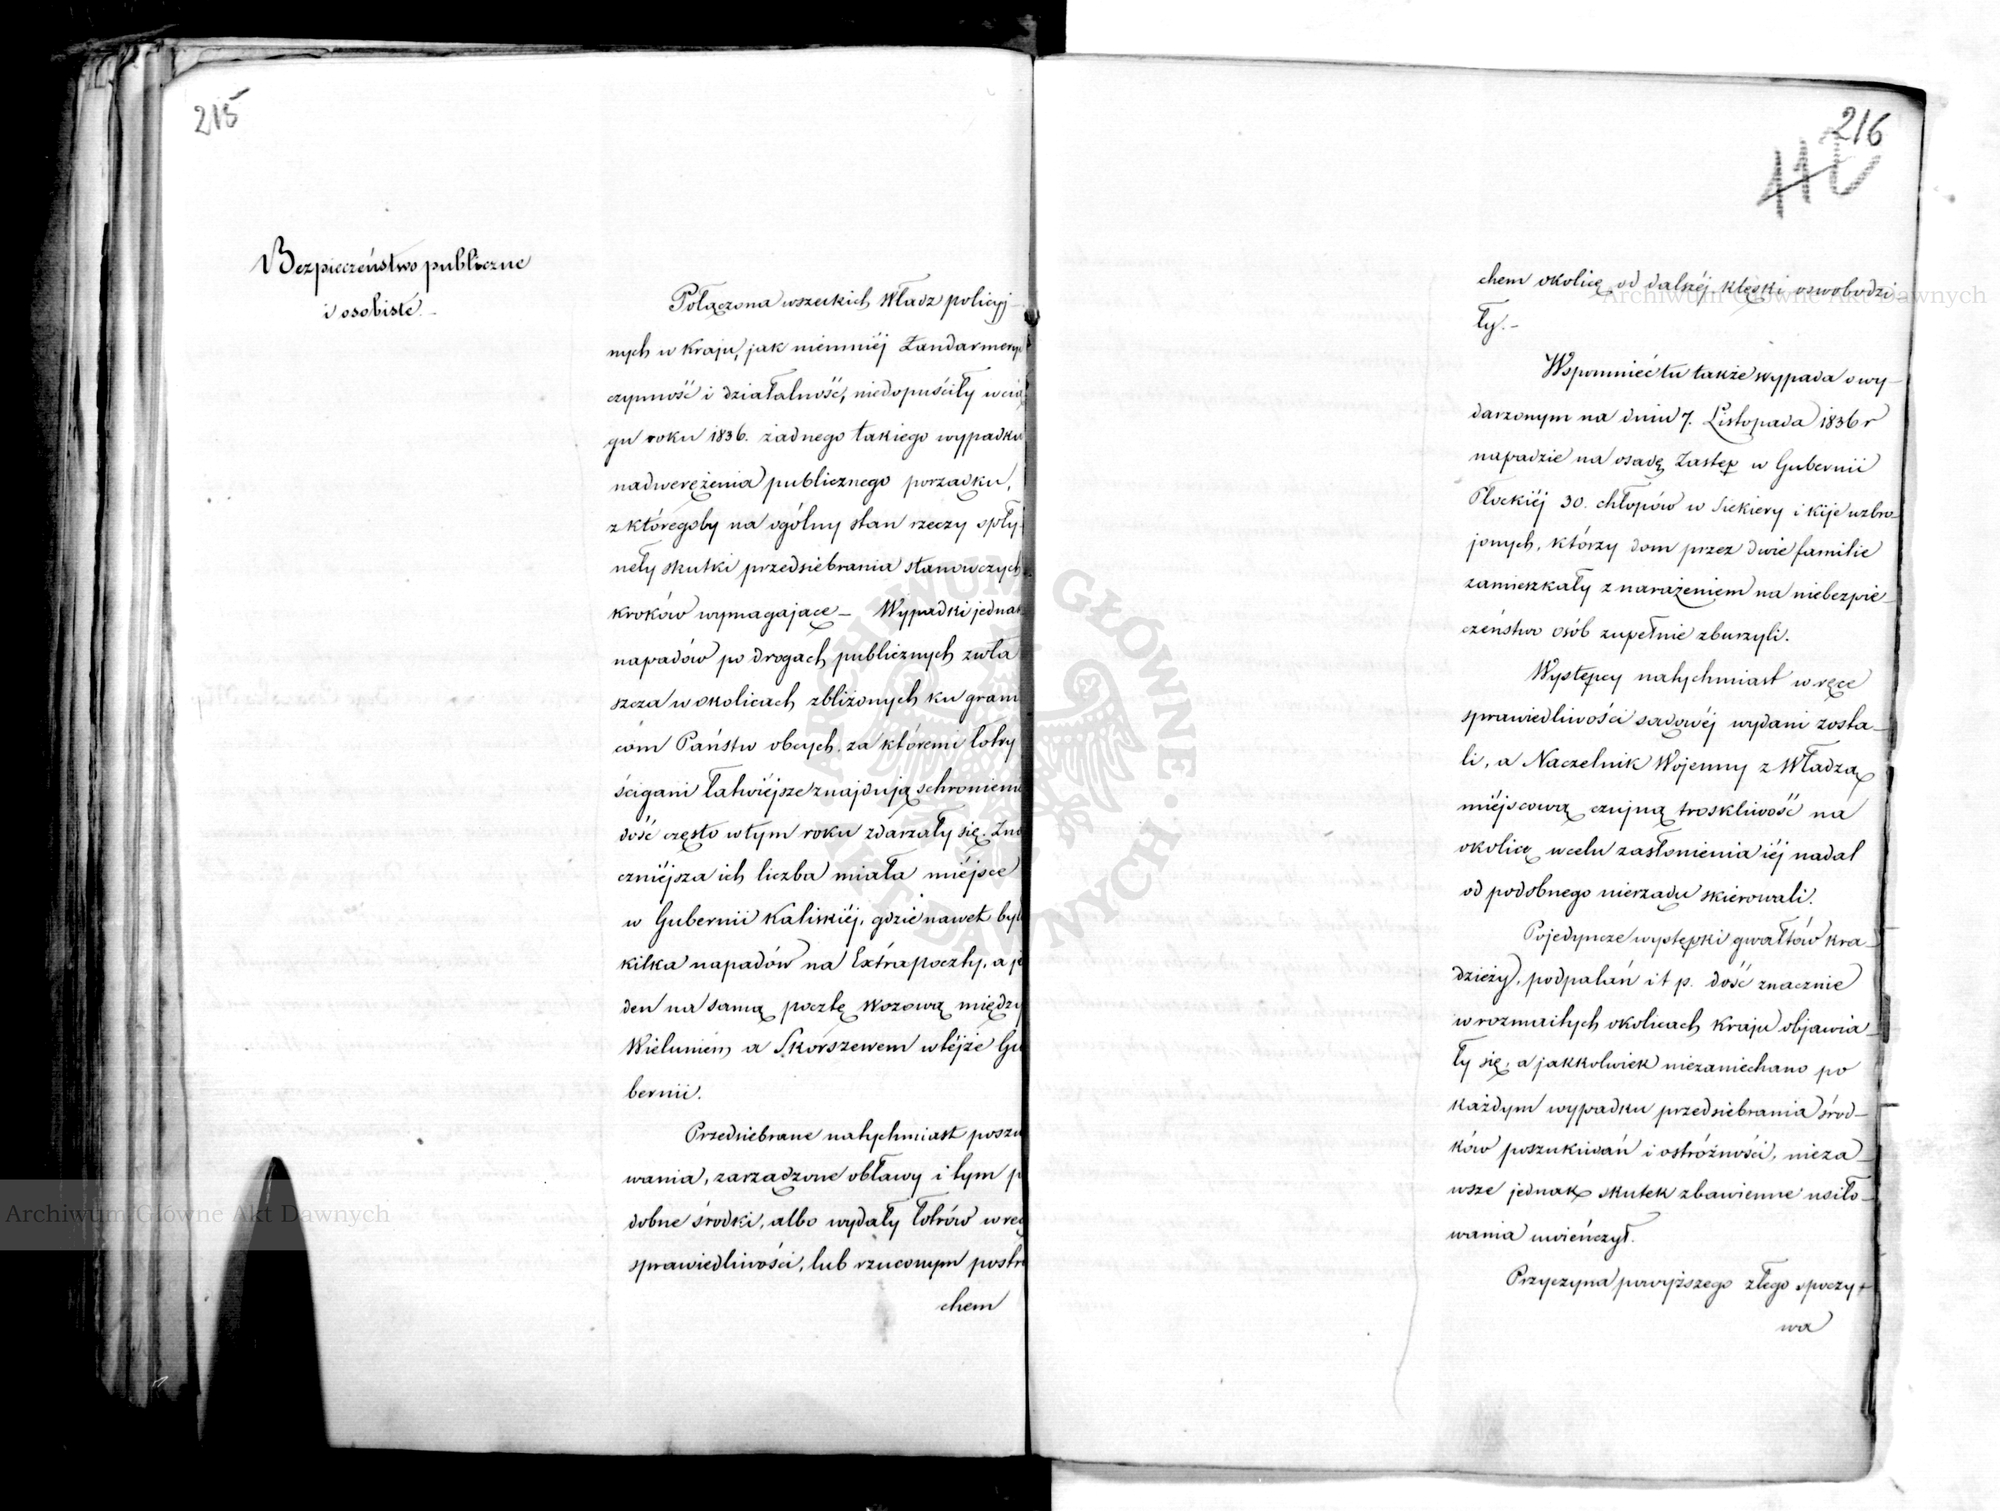 215
Bezpieczeństwo publiczne
i osobiste. –
Połączona wszeckich Władz policyj-
nych w Kraju, jak niemniéj Żandarmeryi
czynność i działalność, niedopuściły w cią
gu roku 1836. żadnego takiego wypadku
nadwerężenia publicznego porządku,
z któregoby na ogólny stan rzeczy spły
nęły skutki przedsiebrania stanowczych
kroków wymagające – Wypadki jednak
napadów po drogach publicznych zwła
szcza w okolicach zbliżonych ku grani
cóm Państw obcych, za któremi łotry
ścigani łatwiéjsze znajdują schronienie
dość często w tym roku zdarzały się. Zna
czniéjsza ich liczba miała miéjsce
w Gubernii Kaliskiéj, gdzie nawet był
kilka napadów na Extrapoczty, a je
den na samą pocztę wozową między
Wieluniem a Skorszewem w téjże Gu
bernii.
Przedsiebrane natychmiast poszu
wania, zarządzone obławy i tym p
dobne środki, albo wydały łotrów w ręc
sprawiedliwości, lub rzuconym postra
chem
216
chem okolicę od dalszéj klęski oswobodzi
ły. –
Wspomnieć tu także wypada o wy-
darzonym na dniu 7. Listopada 1836 r
napadzie na osadę Zastęp w Gubernii
Płockiéj 30. chłopów w Siekiery i kije uzbro-
jonych, którzy dom przez dwie familie
zamieszkały z narażeniem na niebezpie-
czeństwo osób zupełnie zburzyli.
Występcy natychmiast w ręce
sprawiedliwości sądowéj wydani zosta-
li, a Naczelnik Wojenny z Władzą
miéjscową czujną troskliwość na
okolicę w celu zasłonienia iéj nadal
od podobnego nierządu skierowali.
Pojedyncze występki gwałtów kra-
dzieży, podpalań i t p. dość znacznie
w rozmaitych okolicach Kraju objawia-
ły się, a jakkolwiek niezaniechano po
każdym wypadku przedsiebrania środ-
ków poszukiwań i ostróżności, nieza-
wsze jednak skutek zbawienne usiło-
wania uwieńczył.
Przyczyna powyższego złego spoczy-
wa
Archiwum Główne Akt Dawnych
Archiwum Główne Akt Dawnych
ARCHIWUM GŁÓWNE AKT DAWNYCH